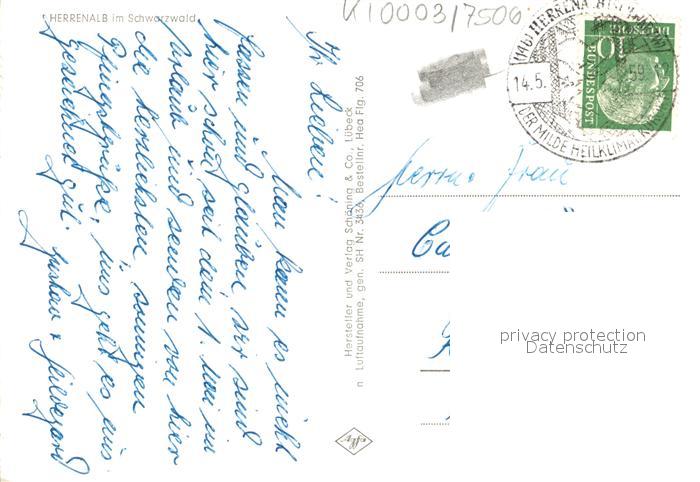 HERRENALB im Schwarzwald
K10003/7500
Ihr Lieben!
Man kann es nicht
fassen und glauben, wir sind
hier schon seit dem 1. Mai im
Urlaub und senden von hier
die herzlichsten, sonnigen
Pfingstgrüße, uns geht es aus-
gezeichnet gut.
Gustav + Hildegard
Hersteller und Verlag Schöning & Co., Lübeck
n Luftaufnahme, gen. SH Nr. 3436, Bestellnr. Hea Flg. 706
14.5. 59
DER MILDE HEILKLIMA
10
DEUTSCHE
BUNDESPOST
Herrn u. Frau
Ca
privacy protection
Datenschutz